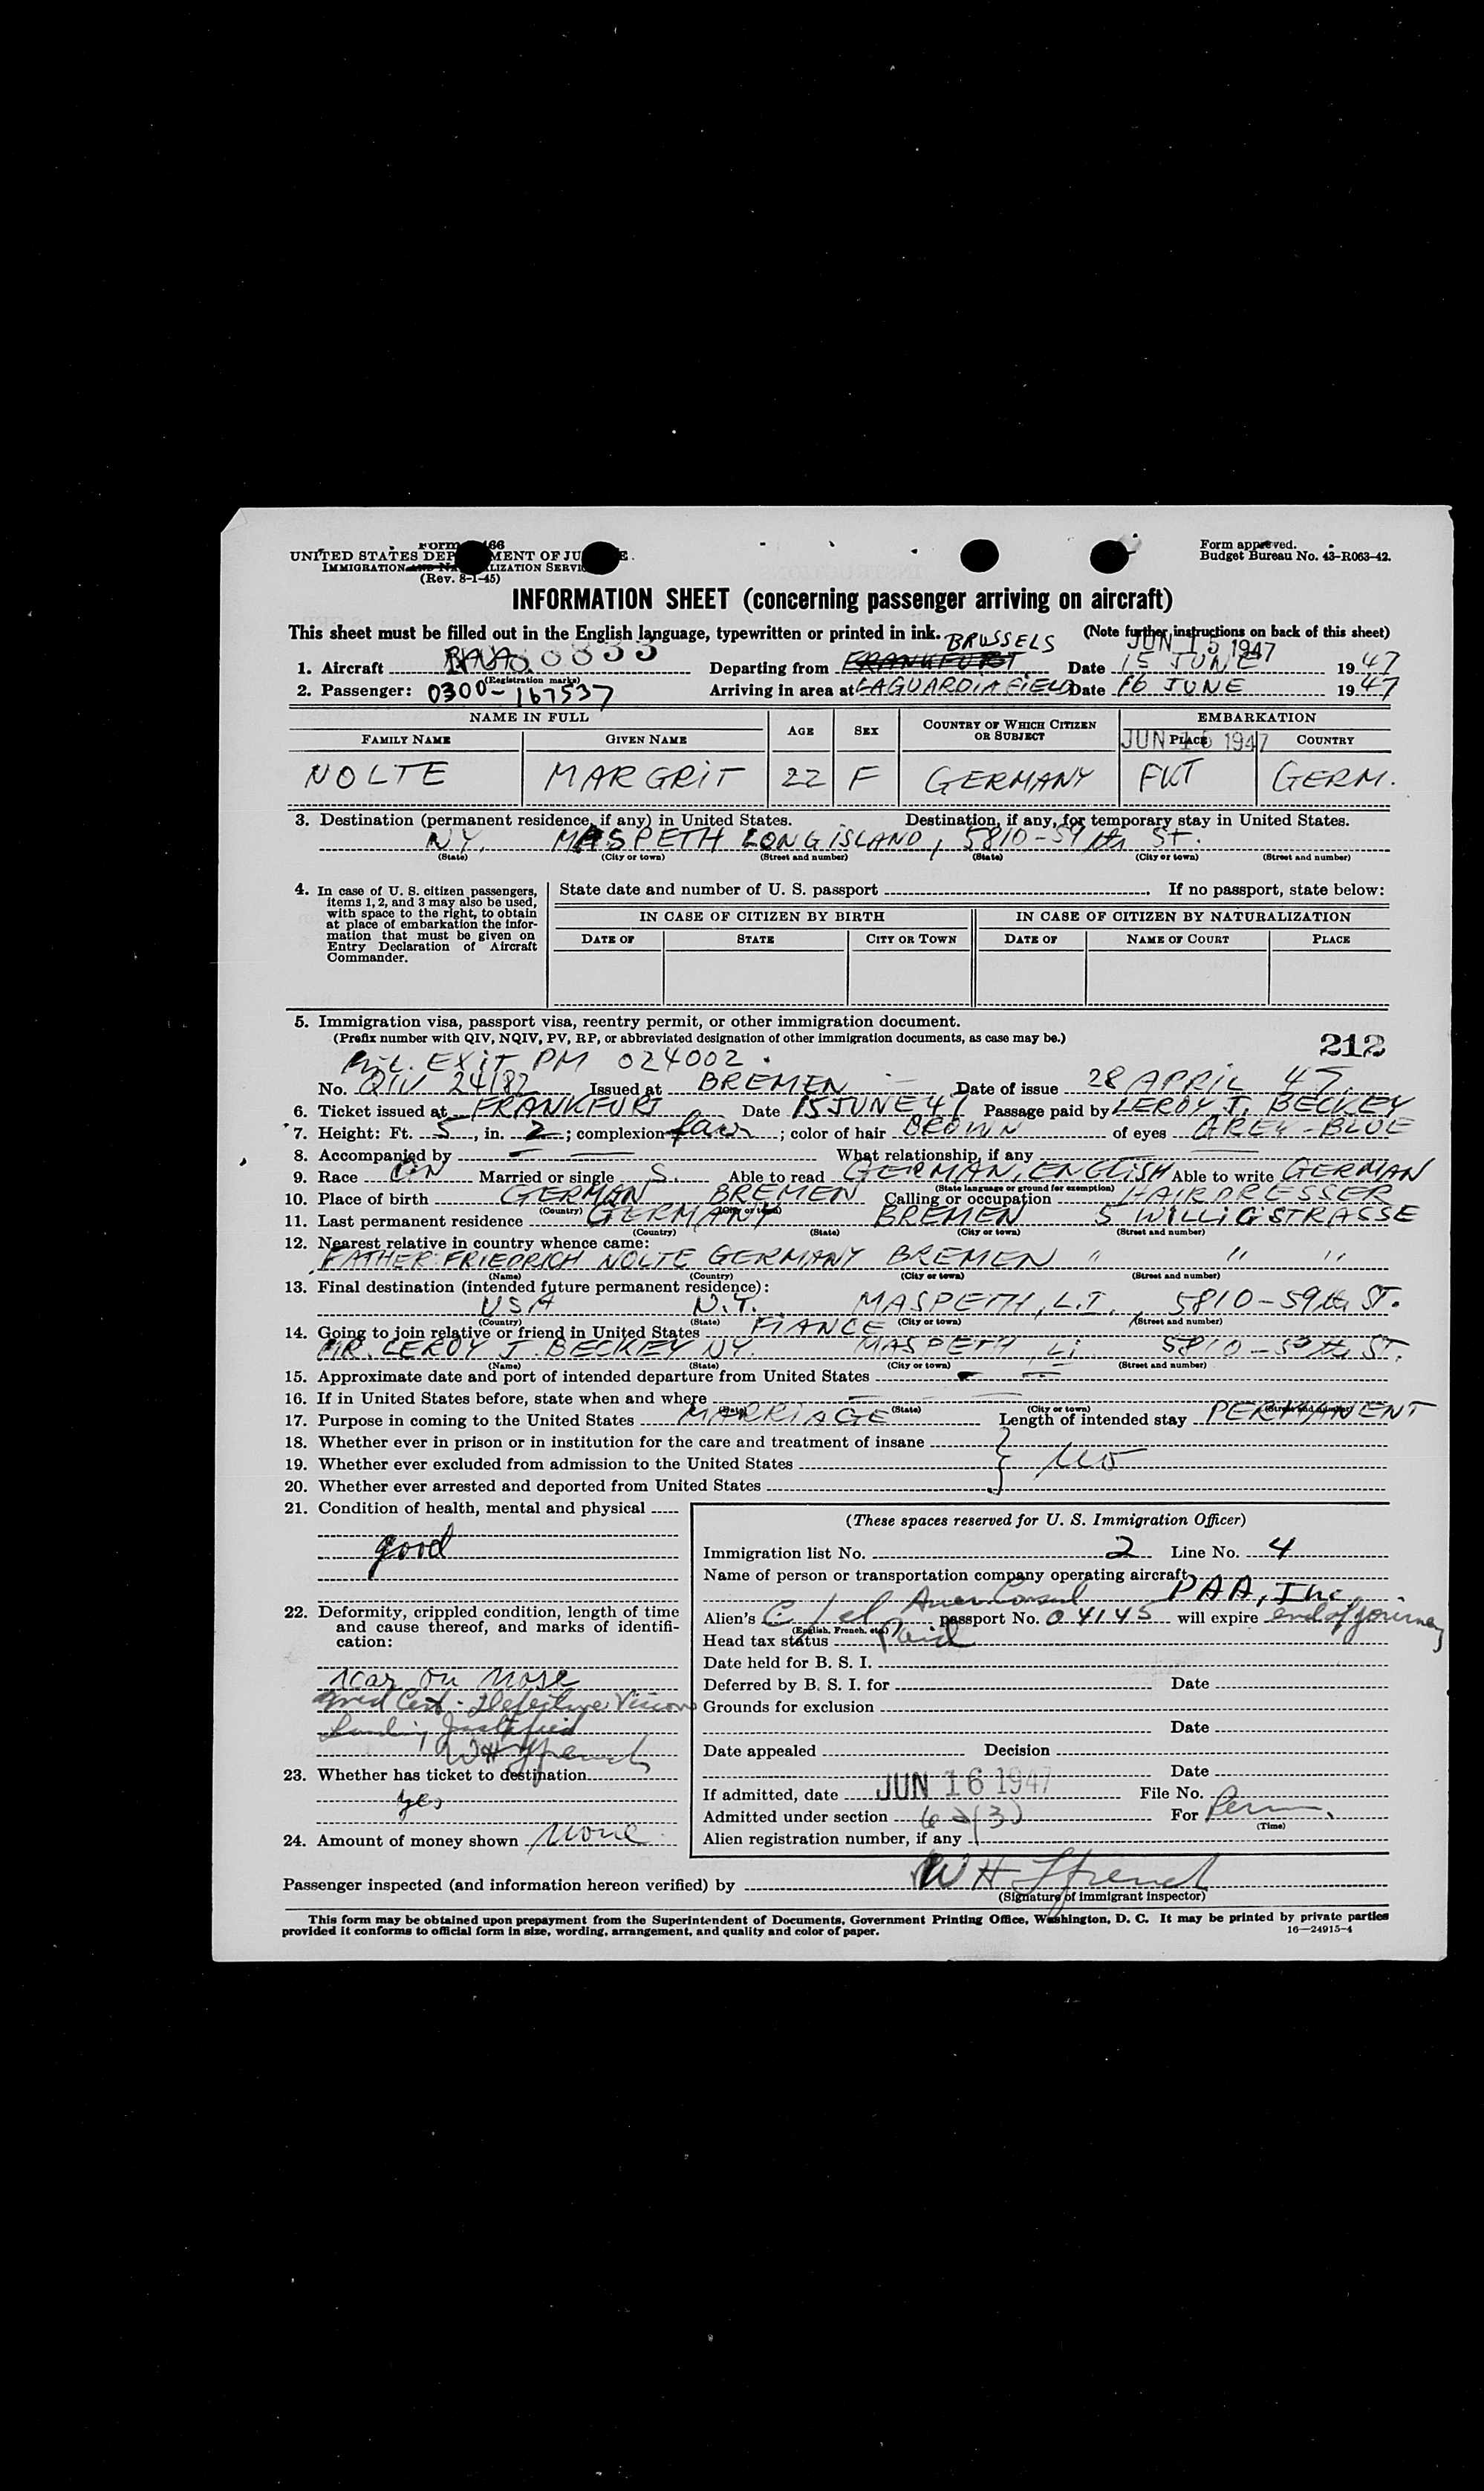 Form 466
UNITED STATES DEPARTMENT OF JUSTICE
IMMIGRATION AND NATURALIZATION SERVICE
(Rev. 8-1-45)
Form approved.
Budget Bureau No. 43-R063-42.
INFORMATION SHEET (concerning passenger arriving on aircraft)
This sheet must be filled out in the English language, typewritten or printed in ink. (Note further instructions on back of this sheet)
BRUSSELS JUN 15 1947
1. Aircraft 88833 Departing from FRANKFURT Date 15 JUNE 1947
(Registration marks)
2. Passenger: 0300-167537 Arriving in area at LAGUARDIA FIELD Date 16 JUNE 1947
NAME IN FULL AGE SEX COUNTRY OF WHICH CITIZEN OR SUBJECT EMBARKATION
FAMILY NAME GIVEN NAME PLACE COUNTRY
JUN 16 1947
NOLTE MARGRIT 22 F GERMANY FKT GERM.
3. Destination (permanent residence, if any) in United States. Destination, if any, for temporary stay in United States.
NY. MASPETH LONG ISLAND, 5810-59th ST.
(State) (City or town) (Street and number) (State) (City or town) (Street and number)
4. In case of U. S. citizen passengers, items 1, 2, and 3 may also be used, with space to the right, to obtain at place of embarkation the information that must be given on Entry Declaration of Aircraft Commander.
State date and number of U. S. passport If no passport, state below:
IN CASE OF CITIZEN BY BIRTH IN CASE OF CITIZEN BY NATURALIZATION
DATE OF STATE CITY OR TOWN DATE OF NAME OF COURT PLACE
5. Immigration visa, passport visa, reentry permit, or other immigration document.
(Prefix number with QIV, NQIV, PV, RP, or abbreviated designation of other immigration documents, as case may be.)
212
MIL. EXIT PM 024002.
No. QIV 24182 Issued at BREMEN Date of issue 28 APRIL 47.
6. Ticket issued at FRANKFURT Date 15 JUNE 47 Passage paid by LEROY J. BECKEY
7. Height: Ft. 5, in. 2; complexion fair; color of hair BROWN of eyes GREY-BLUE
8. Accompanied by — What relationship, if any —
9. Race Married or single S. Able to read GERMAN, ENGLISH Able to write GERMAN
(State language or ground for exemption)
10. Place of birth GERMAN BREMEN Calling or occupation HAIRDRESSER
(Country) (City or town)
11. Last permanent residence GERMANY BREMEN 5 WILLIGSTRASSE
(Country) (State) (City or town) (Street and number)
12. Nearest relative in country whence came:
FATHER: FRIEDRICH NOLTE GERMANY BREMEN " " "
(Name) (Country) (City or town) (Street and number)
13. Final destination (intended future permanent residence):
USA N.Y. MASPETH, L.I., 5810-59th ST.
(Country) (State) (City or town) (Street and number)
14. Going to join relative or friend in United States FIANCE
MR. LEROY J. BECKEY NY. MASPETH, Li. 5810-59th ST.
(Name) (State) (City or town) (Street and number)
15. Approximate date and port of intended departure from United States —
16. If in United States before, state when and where —
(Date) (State) (City or town) (Street and number)
17. Purpose in coming to the United States MARRIAGE Length of intended stay PERMANENT
18. Whether ever in prison or in institution for the care and treatment of insane
19. Whether ever excluded from admission to the United States } no
20. Whether ever arrested and deported from United States
21. Condition of health, mental and physical
good
22. Deformity, crippled condition, length of time and cause thereof, and marks of identification:
scar on nose
Med Cert - Defective Vision
Landing Justified
WH Ffrench
23. Whether has ticket to destination
yes
24. Amount of money shown none
(These spaces reserved for U. S. Immigration Officer)
Immigration list No. 2 Line No. 4
Name of person or transportation company operating aircraft
PAA, Inc.
Amer Consul
Alien's passport No. 04145 will expire end of journey
(English, French, etc.)
Head tax status Paid
Date held for B. S. I.
Deferred by B. S. I. for Date
Grounds for exclusion
Date
Date appealed Decision
Date
If admitted, date JUN 16 1947 File No.
Admitted under section 6 (3) For Perm.
(Time)
Alien registration number, if any
Passenger inspected (and information hereon verified) by WH Ffrench
(Signature of immigrant inspector)
This form may be obtained upon prepayment from the Superintendent of Documents, Government Printing Office, Washington, D. C. It may be printed by private parties
provided it conforms to official form in size, wording, arrangement, and quality and color of paper. 16—24915-4